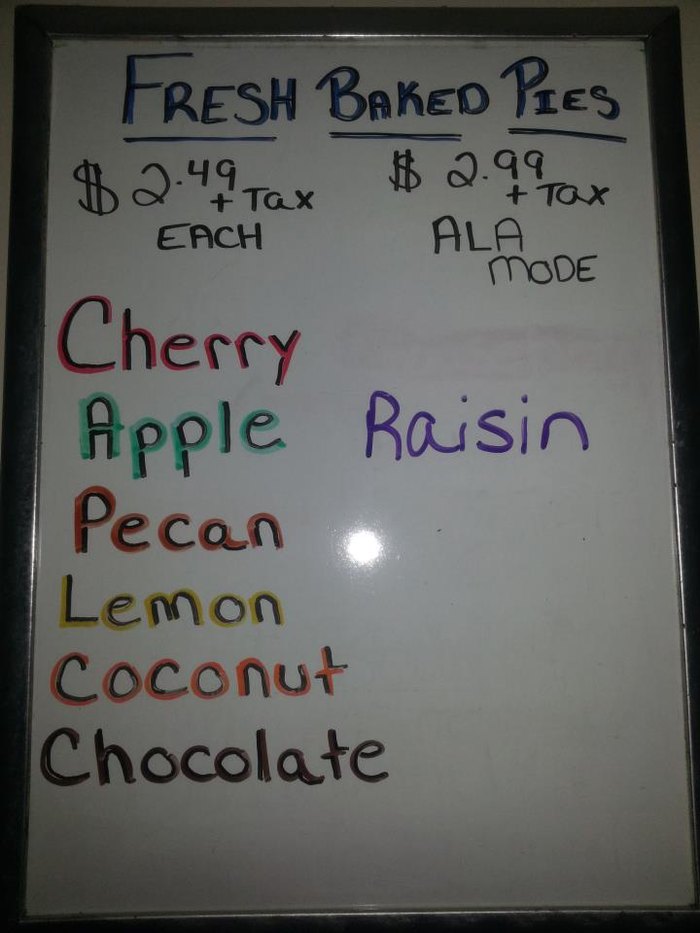 FRESH BAKED PIES
$2.49 + Tax
EACH
$2.99 + Tax
ALA
MODE
Cherry
Apple
Raisin
Pecan
Lemon
Coconut
Chocolate